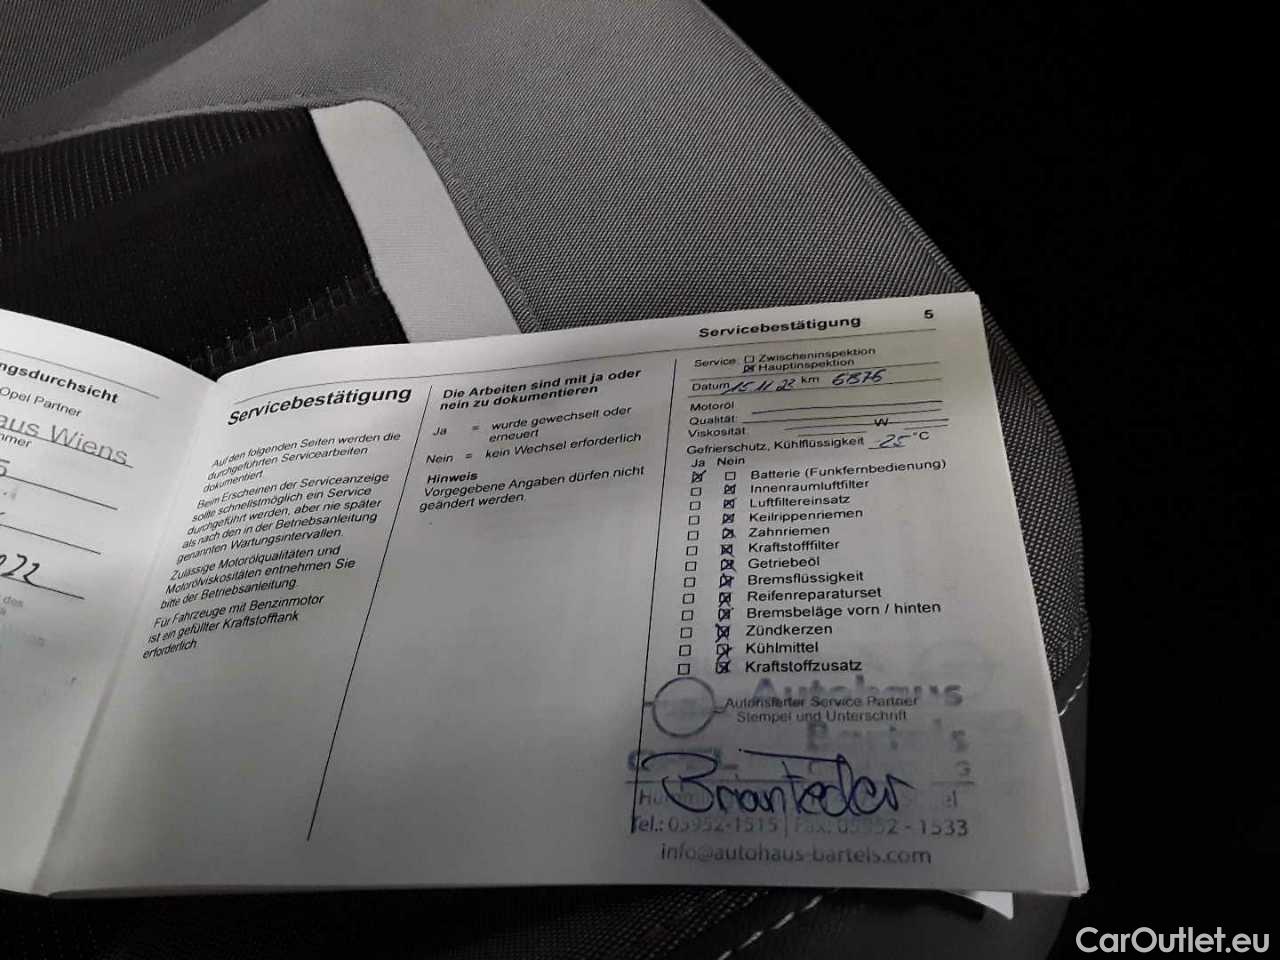 ngsdurchsicht
Opel Partner
aus Wiens
mmer
5
022
des
Servicebestätigung
Auf den folgenden Seiten werden die
durchgeführten Servicearbeiten
dokumentiert.
Beim Erscheinen der Serviceanzeige
sollte schnellstmöglich ein Service
durchgeführt werden, aber nie später
als nach den in der Betriebsanleitung
genannten Wartungsintervallen.
Zulässige Motorölqualitäten und
Motorölviskositäten entnehmen Sie
bitte der Betriebsanleitung.
Für Fahrzeuge mit Benzinmotor
ist ein gefüllter Kraftstofftank
erforderlich.
Die Arbeiten sind mit ja oder
nein zu dokumentieren
Ja = wurde gewechselt oder
erneuert
Nein = kein Wechsel erforderlich
Hinweis
Vorgegebene Angaben dürfen nicht
geändert werden.
Servicebestätigung 5
Service: Zwischeninspektion
Hauptinspektion
Datum 15.11.23 km 6876
Motoröl
Qualität:
Viskosität: W
Gefrierschutz, Kühlflüssigkeit -25 °C
Ja Nein
Batterie (Funkfernbedienung)
Innenraumluftfilter
Luftfiltereinsatz
Keilrippenriemen
Zahnriemen
Kraftstofffilter
Getriebeöl
Bremsflüssigkeit
Reifenreparaturset
Bremsbeläge vorn / hinten
Zündkerzen
Kühlmittel
Kraftstoffzusatz
Autohaus
Autorisierter Service Partner
Stempel und Unterschrift
Bartels
Tel.: 05952-1515 | Fax: 05952 - 1533
info@autohaus-bartels.com
CarOutlet.eu